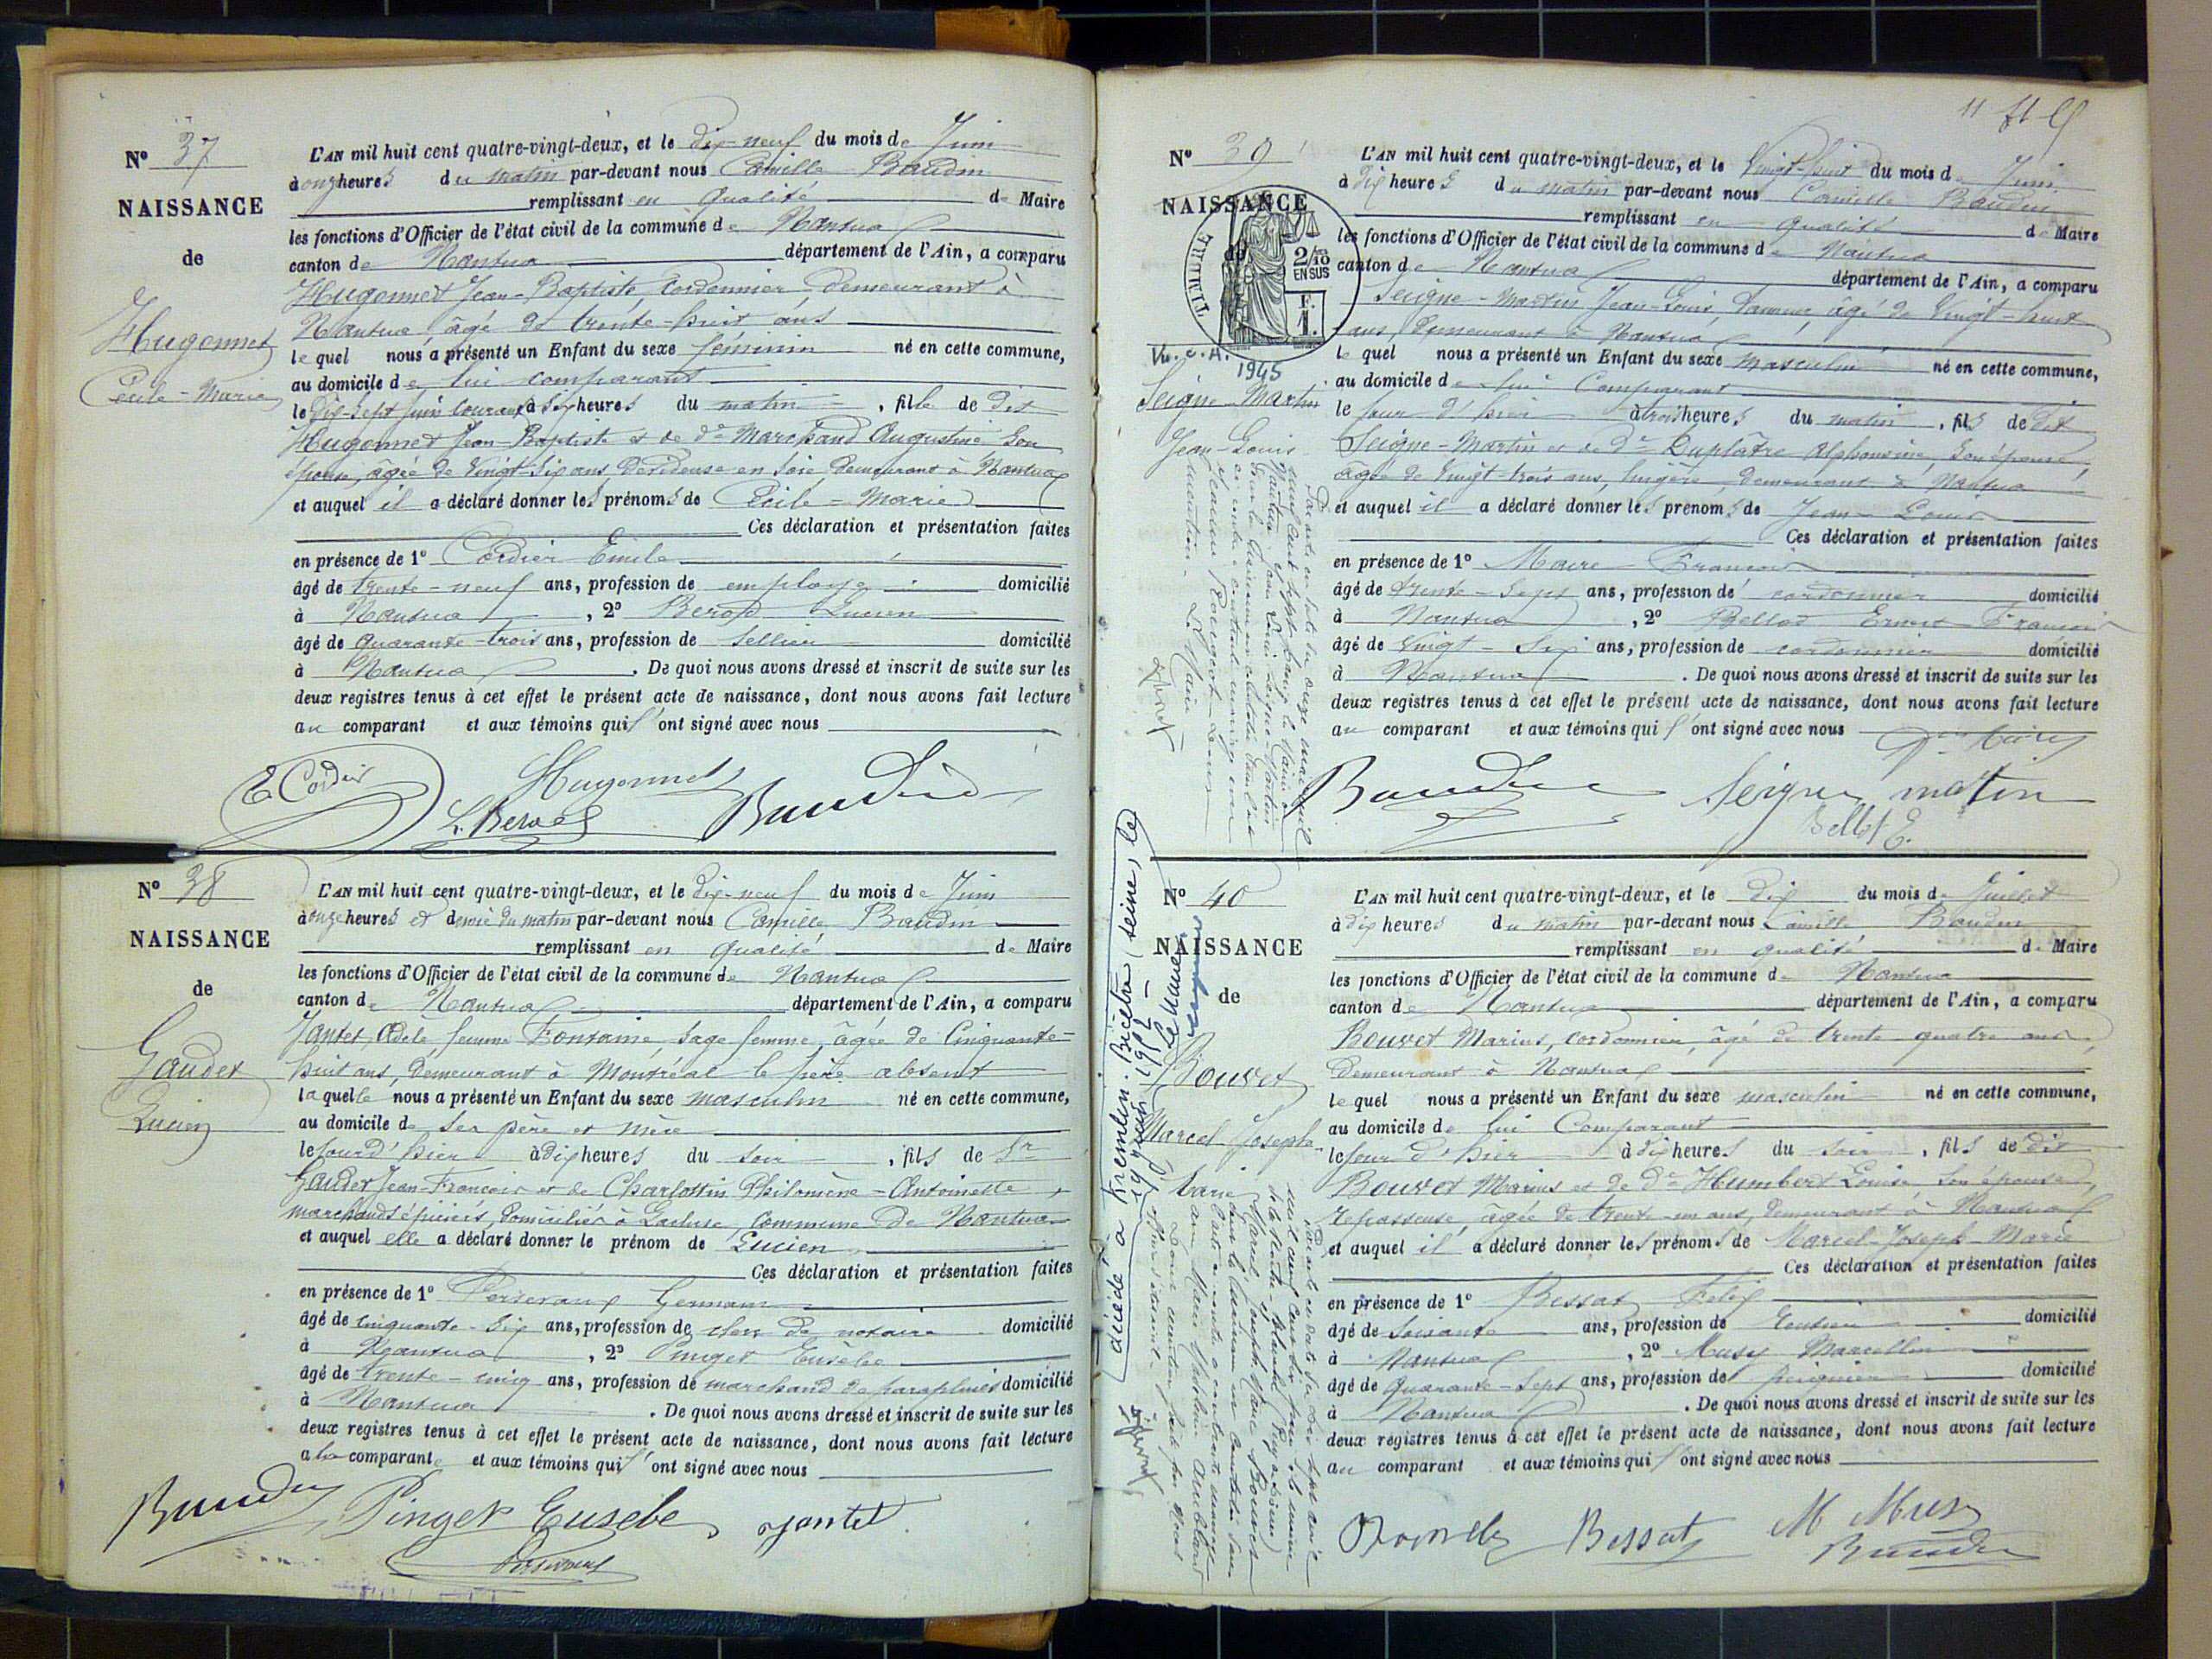 N° 37
NAISSANCE
de
Hugonnet
Cécile-Marie
L'AN mil huit cent quatre-vingt-deux, et le dix-neuf du mois de Juin
à onze heures du matin par-devant nous Camille Baudin
remplissant en qualité de Maire
les fonctions d'Officier de l'état civil de la commune de Nantua
canton de Nantua département de l'Ain, a comparu
Hugonnet Jean-Baptiste, cordonnier demeurant à
Nantua, âgé de trente-huit ans
le quel nous a présenté un Enfant du sexe féminin né en cette commune,
au domicile de lui comparant
le dix-sept juin courant à six heures du matin, fille de dit
Hugonnet Jean-Baptiste et de de Marchand Augustine son
épouse, âgée de vingt-six ans, dévideuse en soie, demeurant à Nantua
et auquel il a déclaré donner les prénoms de Cécile-Marie
Ces déclaration et présentation faites
en présence de 1° Cordier Emile
âgé de trente-neuf ans, profession de employé domicilié
à Nantua, 2° Berod Lucien
âgé de quarante-trois ans, profession de sellier domicilié
à Nantua. De quoi nous avons dressé et inscrit de suite sur les
deux registres tenus à cet effet le présent acte de naissance, dont nous avons fait lecture
au comparant et aux témoins qui ont signé avec nous
E Cordier Hugonnet
L. Berod Baudin
N° 38
NAISSANCE
de
Gaudet
Lucien
L'AN mil huit cent quatre-vingt-deux, et le dix-neuf du mois de Juin
à onze heures et demie du matin par-devant nous Camille Baudin
remplissant en qualité de Maire
les fonctions d'Officier de l'état civil de la commune de Nantua
canton de Nantua département de l'Ain, a comparu
Jantet, Adele femme Fontaine, sage femme, âgée de cinquante-
huit ans, demeurant à Montréal le père absent
la quelle nous a présenté un Enfant du sexe masculin né en cette commune,
au domicile de ses père et mère
le jour d'hier à dix heures du soir, fils de Sr
Gaudet Jean-François et de Charlottin Philomène-Antoinette,
marchands épiciers, domiciliés à Lacluse, commune de Nantua
et auquel elle a déclaré donner le prénom de Lucien
Ces déclaration et présentation faites
en présence de 1° Germain
âgé de cinquante-six ans, profession de clerc de notaire domicilié
à Nantua, 2° Pinget Eusèbe
âgé de trente-cinq ans, profession de marchand de parapluies domicilié
à Nantua. De quoi nous avons dressé et inscrit de suite sur les
deux registres tenus à cet effet le présent acte de naissance, dont nous avons fait lecture
a la comparante et aux témoins qui ont signé avec nous
Baudin Pinget Eusebe Jantet
11
N° 39
NAISSANCE
de
TIMBRE
2/10 EN SUS
F. 1.
Vu. c. A.
1945
Seigne-Martin
Jean-Louis
L'AN mil huit cent quatre-vingt-deux, et le vingt-huit du mois de Juin
à dix heures du matin par-devant nous Camille Baudin
remplissant en qualité de Maire
les fonctions d'Officier de l'état civil de la commune de Nantua
canton de Nantua département de l'Ain, a comparu
Seigne-Martin Jean-Louis, tanneur, âgé de vingt-huit
ans, demeurant à Nantua
le quel nous a présenté un Enfant du sexe masculin né en cette commune,
au domicile de lui Comparant
le jour d'hier à trois heures du matin, fils de dit
Seigne-Martin et de de Duplâtre Alphonsine, son épouse,
âgée de vingt-trois ans, lingère, demeurant à Nantua
et auquel il a déclaré donner les prénoms de Jean-Louis
Ces déclaration et présentation faites
en présence de 1° Maire François
âgé de trente-sept ans, profession de cordonnier domicilié
à Nantua, 2° Bellod Ernest François
âgé de vingt-six ans, profession de cordonnier domicilié
à Nantua. De quoi nous avons dressé et inscrit de suite sur les
deux registres tenus à cet effet le présent acte de naissance, dont nous avons fait lecture
au comparant et aux témoins qui ont signé avec nous
Baudin Seigne martin
Bellot E.
N° 40
NAISSANCE
de
Bouvet
Marcel-Joseph-
Marie
décédé à Kremlin-Bicêtre (Seine) le
L'AN mil huit cent quatre-vingt-deux, et le dix du mois de Juillet
à dix heures du matin par-devant nous Camille Baudin
remplissant en qualité de Maire
les fonctions d'Officier de l'état civil de la commune de Nantua
canton de Nantua département de l'Ain, a comparu
Bouvet Marius, cordonnier, âgé de trente-quatre ans,
demeurant à Nantua
le quel nous a présenté un Enfant du sexe masculin né en cette commune,
au domicile de lui Comparant
le jour d'hier à dix heures du soir, fils de dit
Bouvet Marius et de de Humbert Louise son épouse,
repasseuse, âgée de trente-un ans, demeurant à Nantua
et auquel il a déclaré donner les prénoms de Marcel-Joseph-Marie
Ces déclaration et présentation faites
en présence de 1° Bessat Félix
âgé de soixante ans, profession de domicilié
à Nantua, 2° Musy Marcellin
âgé de quarante-sept ans, profession de peignier domicilié
à Nantua. De quoi nous avons dressé et inscrit de suite sur les
deux registres tenus à cet effet le présent acte de naissance, dont nous avons fait lecture
au comparant et aux témoins qui ont signé avec nous
Bessat M Musy
Baudin